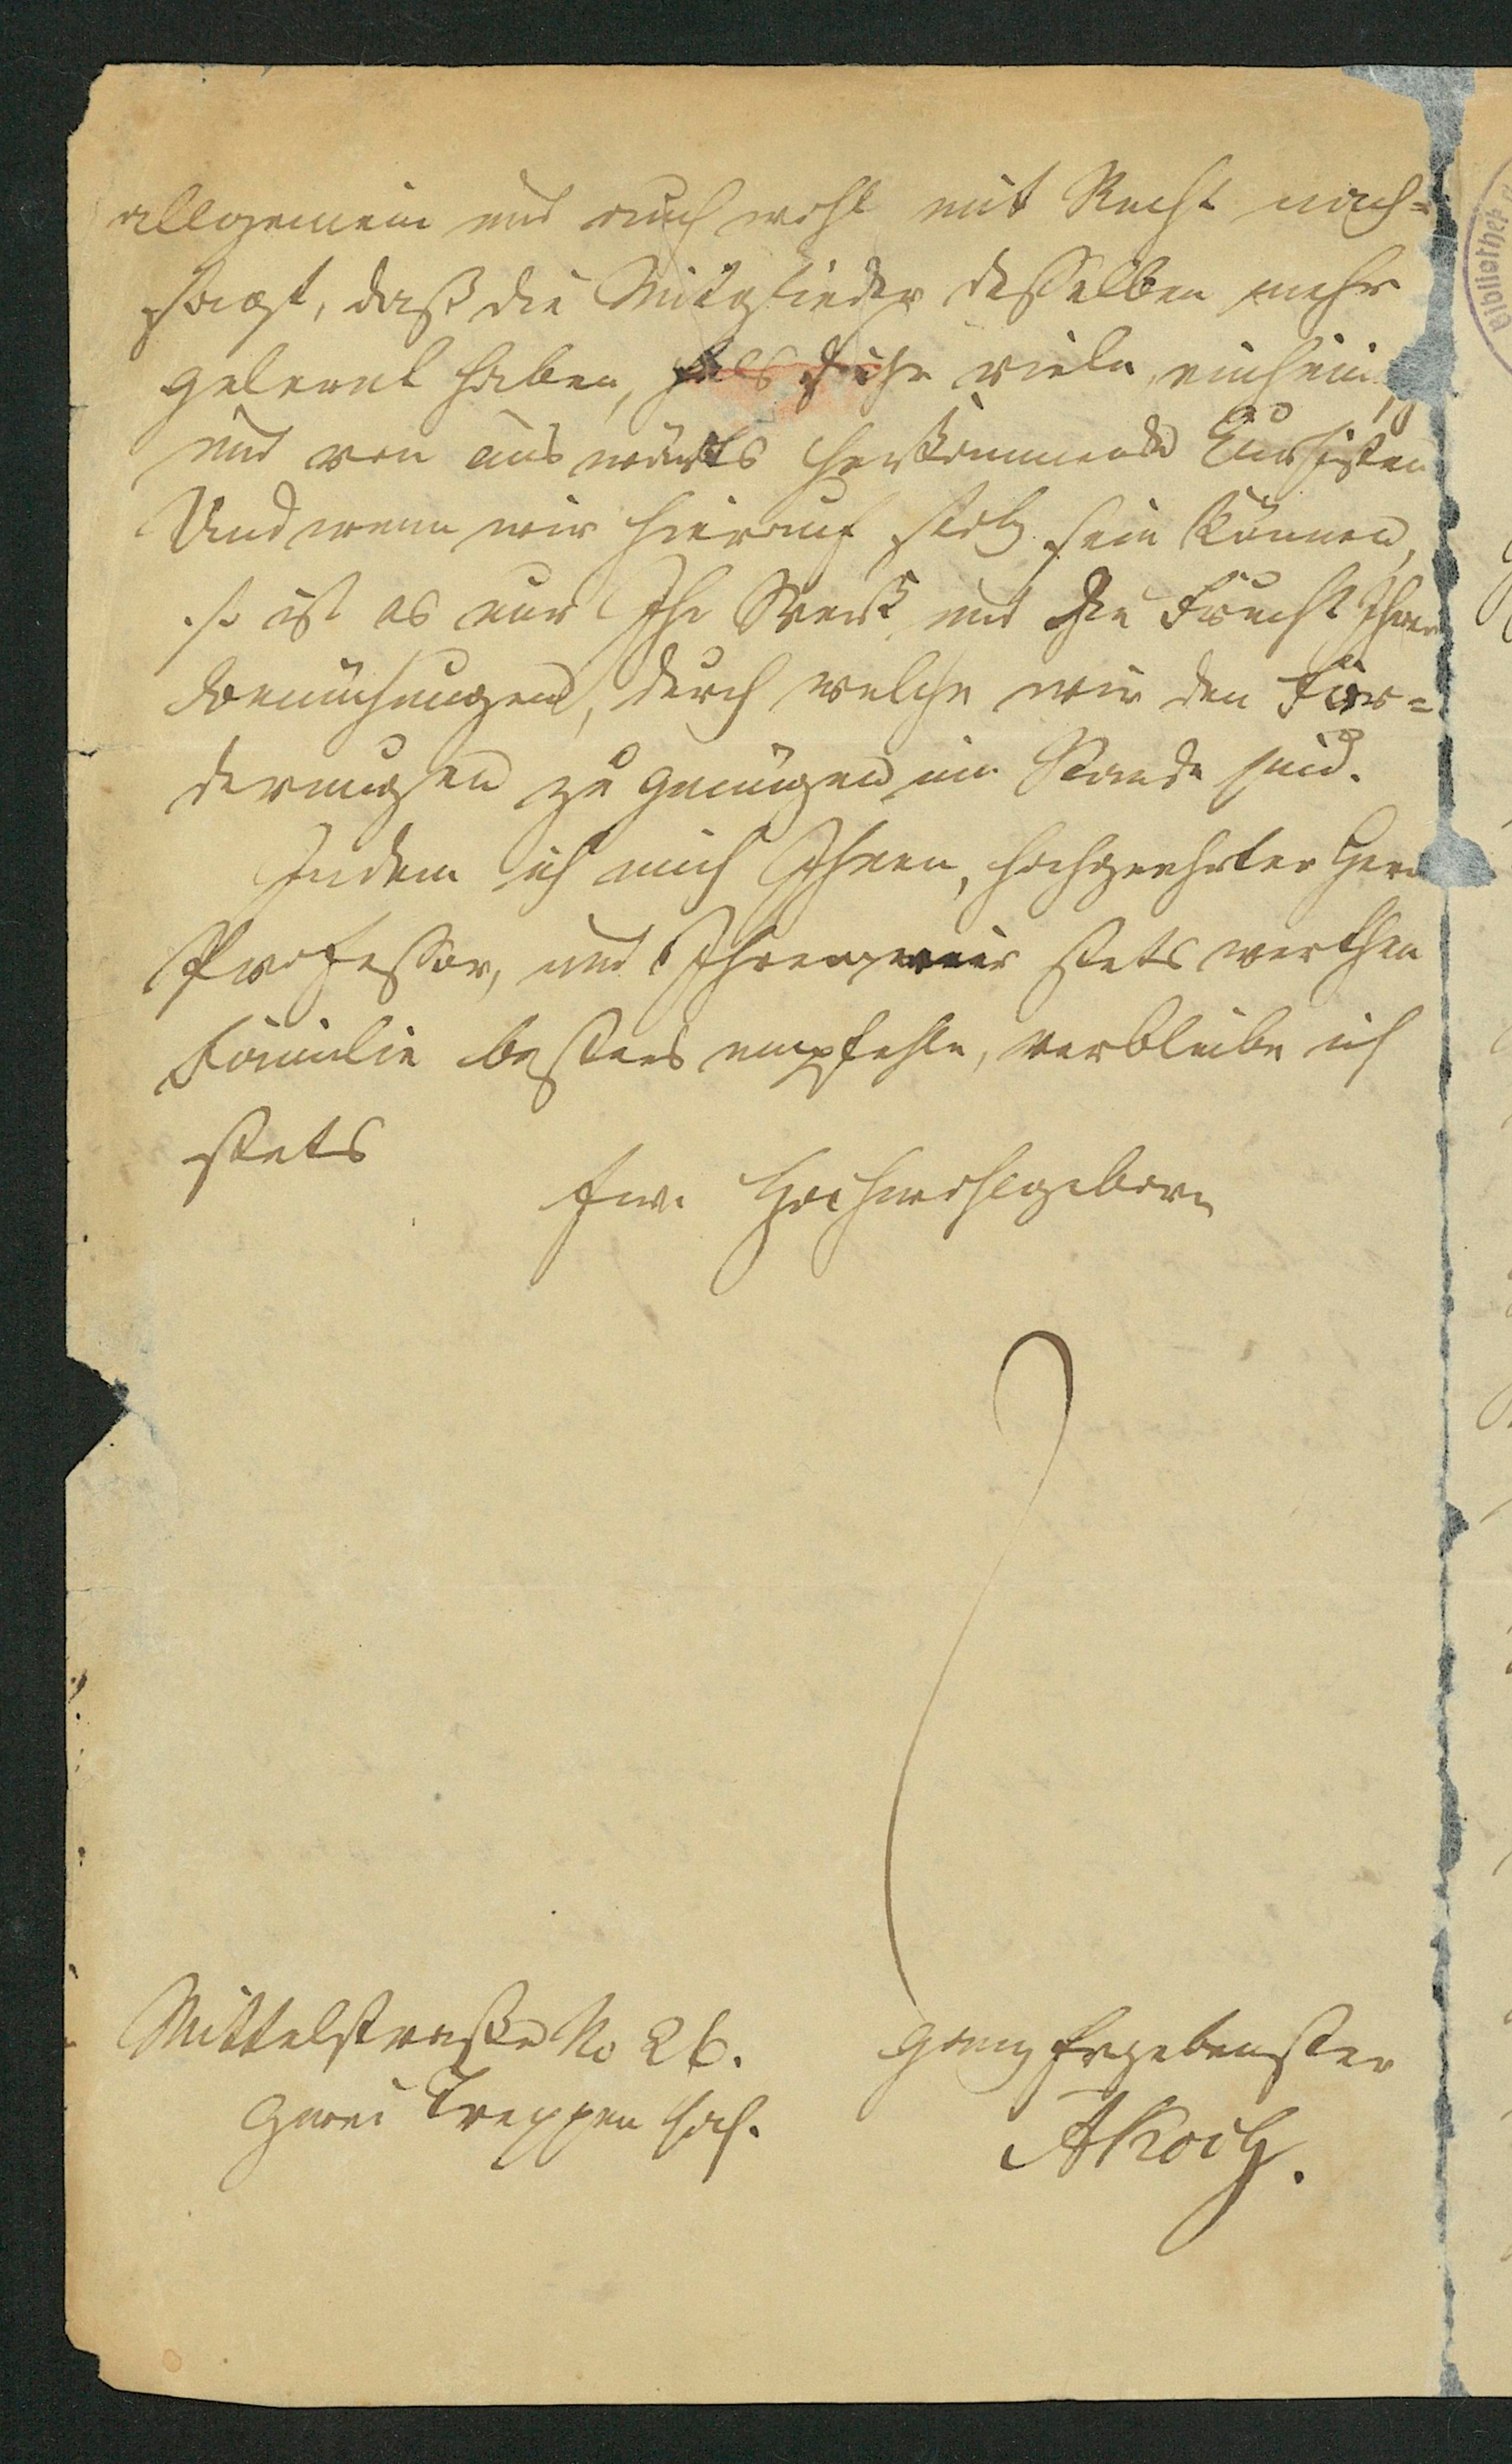 allgemein und auch wohl mit Recht nach=
sagt, daß die Mitglieder desselben mehr
gelernt haben, als sehr viele
und von auswärts herkommende
Und wenn wir hierauf stolz sein können,
so ist es nur Ihr Werk und die Frucht Ihrer
Bemühungen, durch welche wir den For=
derungen zu genügen im Stande sind.
Indem ich mich Ihnen, hochgeehrter Herr
Professor, und Ihrer mir stets werthen
Familie bestens empfehle, verbleibe ich
stets
Ew. Hochwohlgeboren
Mittelstraße No 26.
zwei Treppen hoch.
ganz Ergebenster
AKoch.
Bibliothek